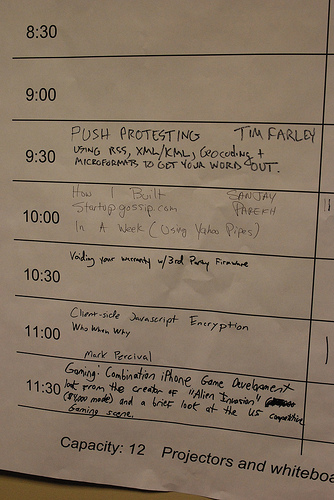 8:30
9:00
PUSH PROTESTING TIM FARLEY
9:30 USING RSS, XML/KML, Geocoding +
MICROFORMATS TO GET YOUR WORD OUT.
How I Built SANJAY
Startupgossip.com PAREKH
10:00 In A Week (Using Yahoo Pipes)
Voiding your warranty w/3rd Party Firmware
10:30
Client-side Javascript Encryption
11:00 Who When Why
Mark Percival
Gaming: Combination iPhone Game Development
look from the creator of "Alien Invasion"
11:30 and a brief look at the US competitive
Gaming scene.
Capacity: 12 Projectors and whitebo